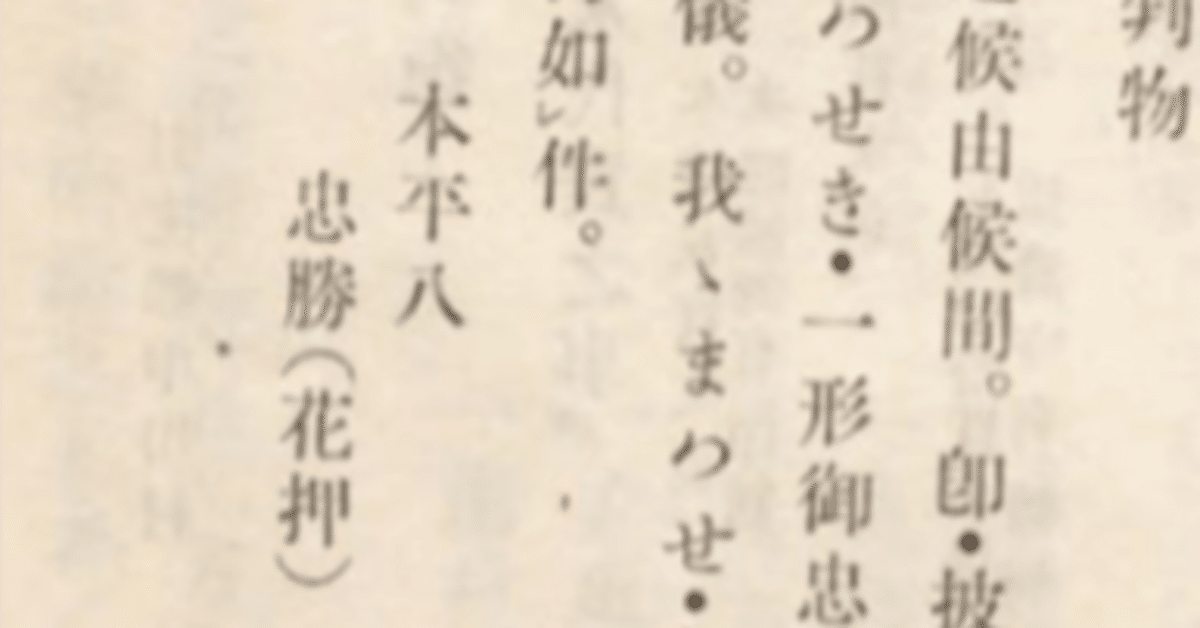 判物
候由候間。卽・披
わせき・一形御忠
儀。我ゝまわせ・
如レ件。
本平八
忠勝（花押）